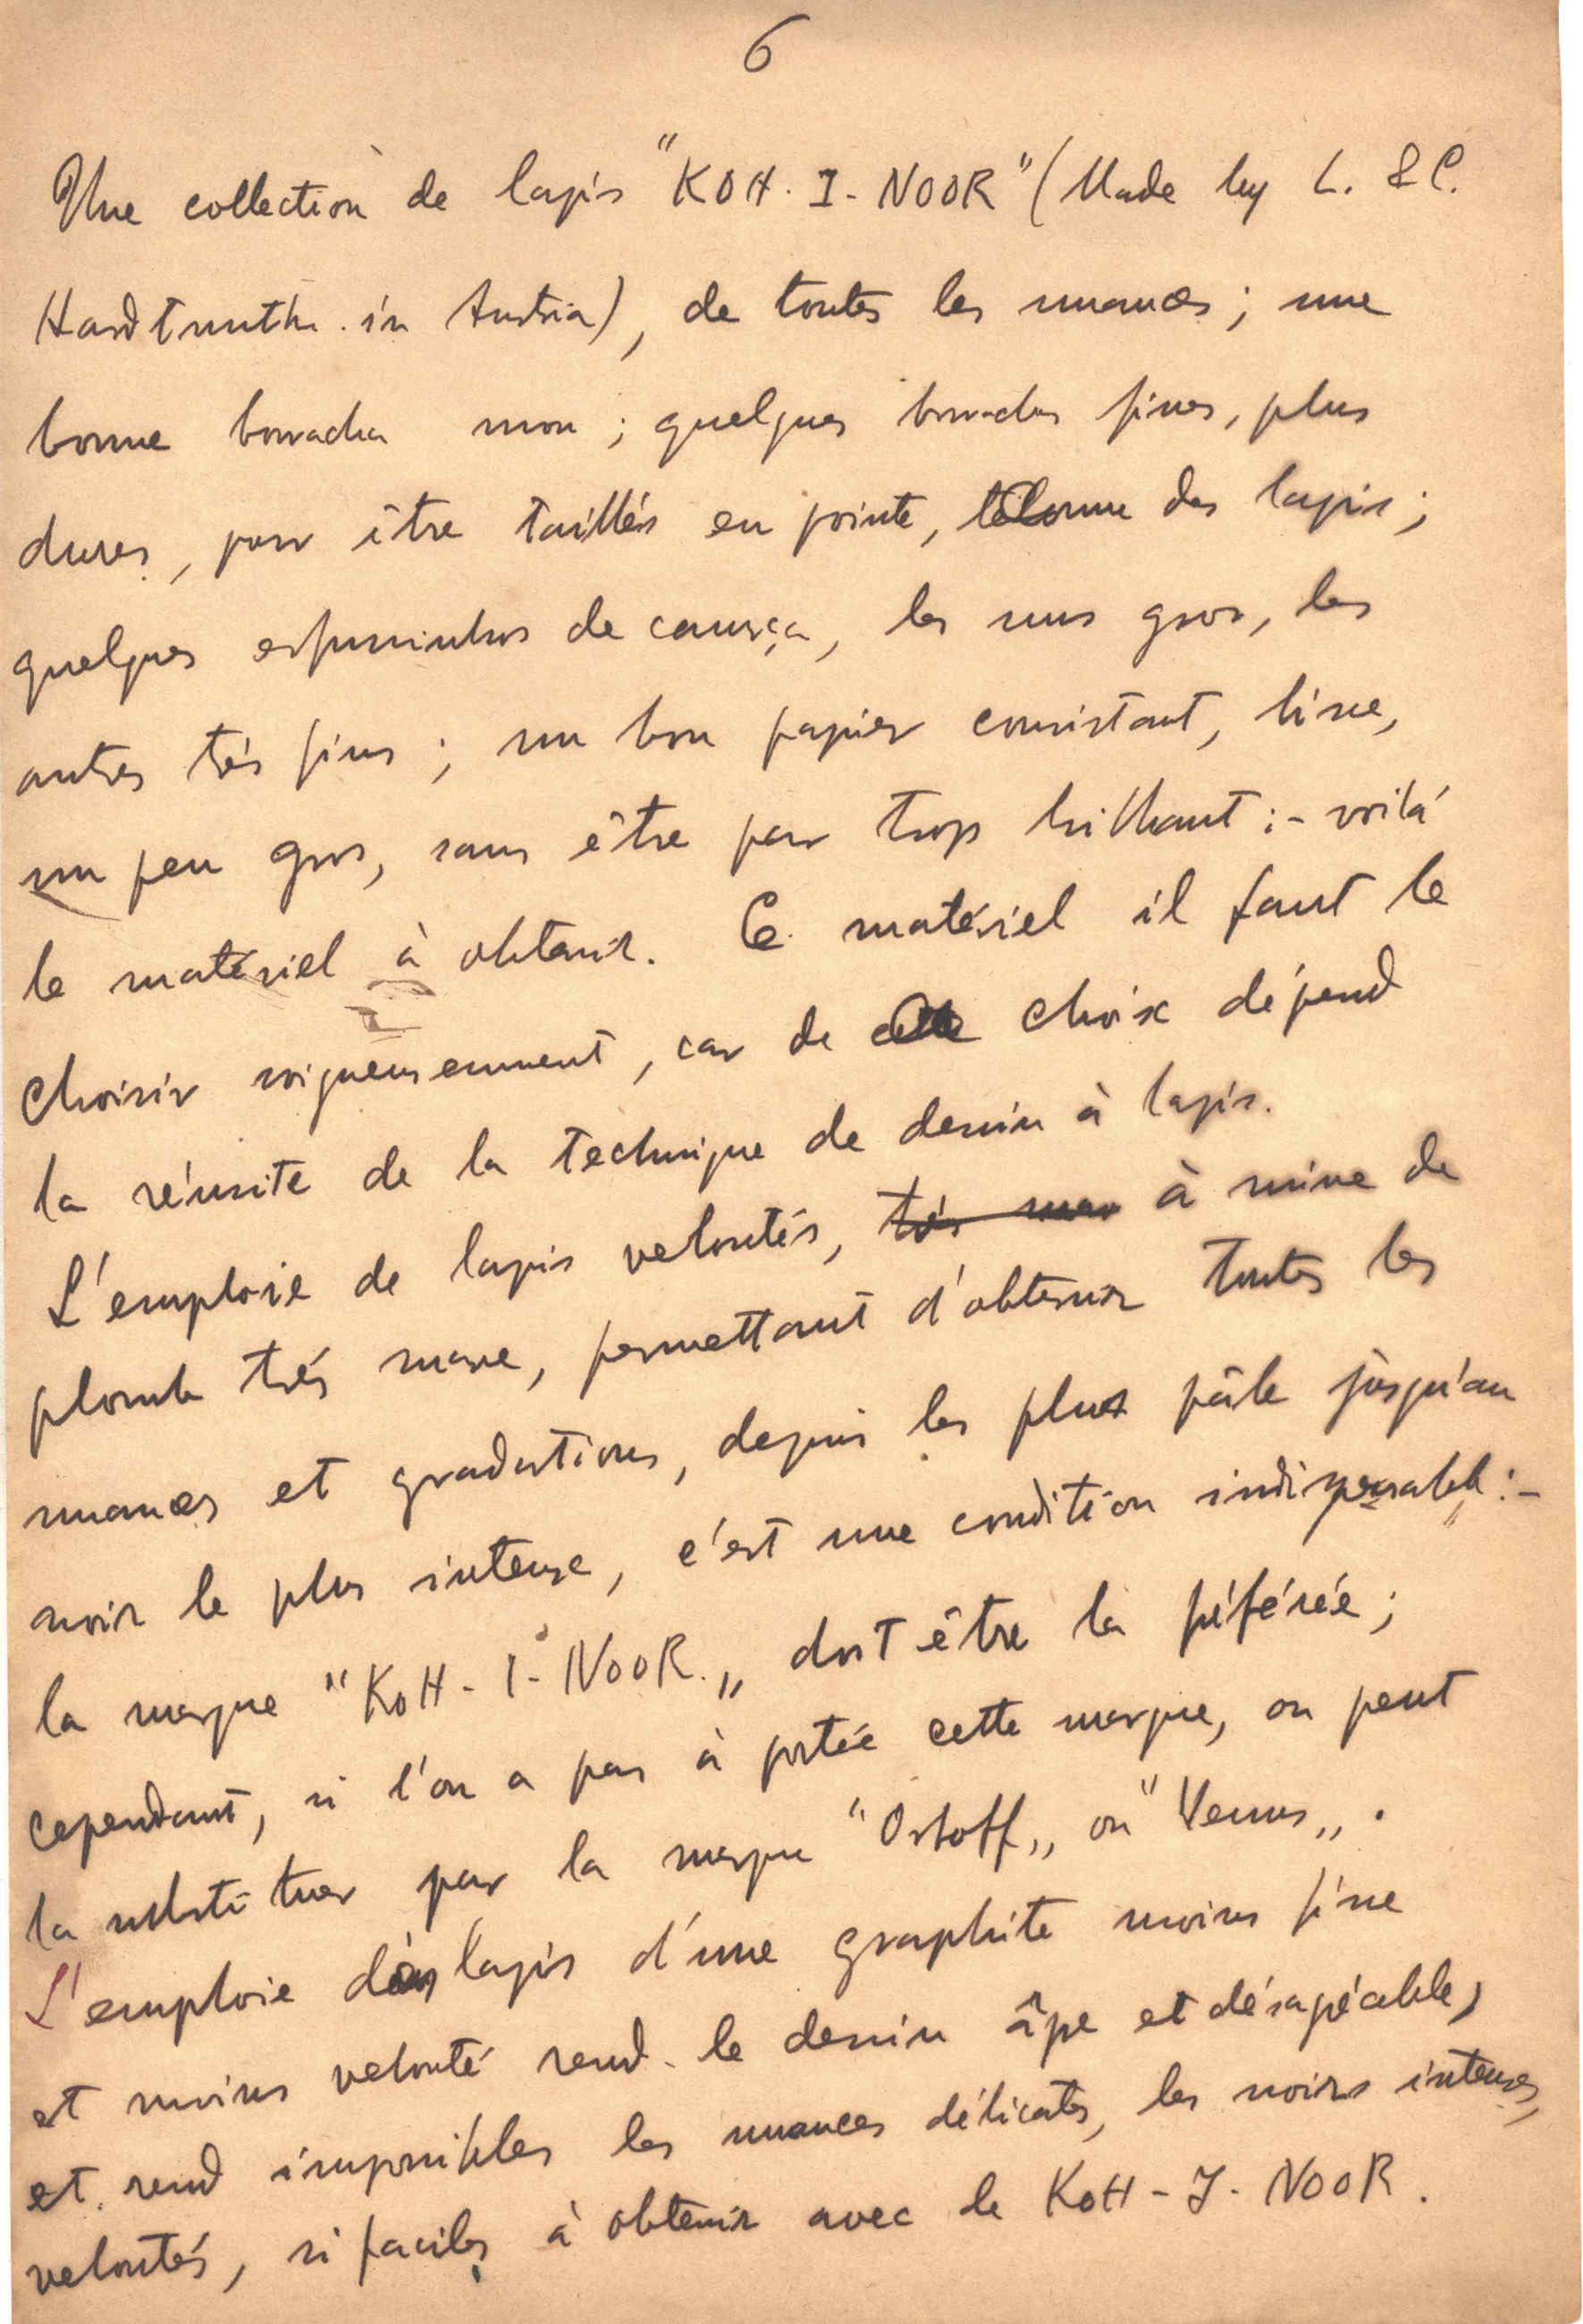 6
Une collection de lapis "KOH-I-NOOR" (Made by L. & C.
Hardtmuth. in Austria), de toutes les nuances; une
bonne borracha mou; quelques borrachas fines, plus
dures, pour être taillés en pointe, comme des lapis;
quelques esfuminhos de camurça, les uns gros, les
autres trés fins; un bon papier consistant, lisse,
un peu gros, sans être par trop brilhant:- voilá
le matériel à obtenir. Ce matériel il faut le
choisir soigneusemment, car de choix dépend
la réussite de la technique de dessin à lapis.
L'emploie de lapis veloutés, à mine de
plomb trés mave, permettant d'obtenir toutes les
nuances et gradations, depuis les plus pâle jusqu'au
noir le plus intense, c'est une condition indispensable:-
la marque "KOH-I-NOOR„ doit être la préférée;
cependant, si l'on a pas à portée cette marque, on peut
la substituer par la marque "Orloff„ ou "Venus„.
L'emploie des lapis d'une graphite moins fine
et moins velouté rend le dessin âpre et désagréable,
et rend impossibles les nuances délicates, les noirs intenses,
veloutés, si faciles à obtenir avec le KOH-I-NOOR.